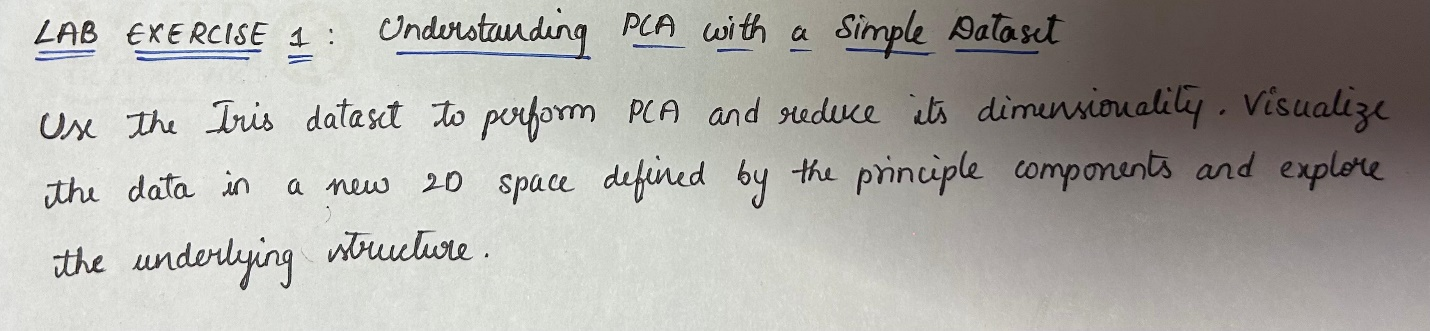 LAB EXERCISE 1 : Understanding PCA with a Simple Dataset
Use the Iris dataset to perform PCA and reduce its dimensionality. Visualize
the data in a new 2D space defined by the principle components and explore
the underlying structure.